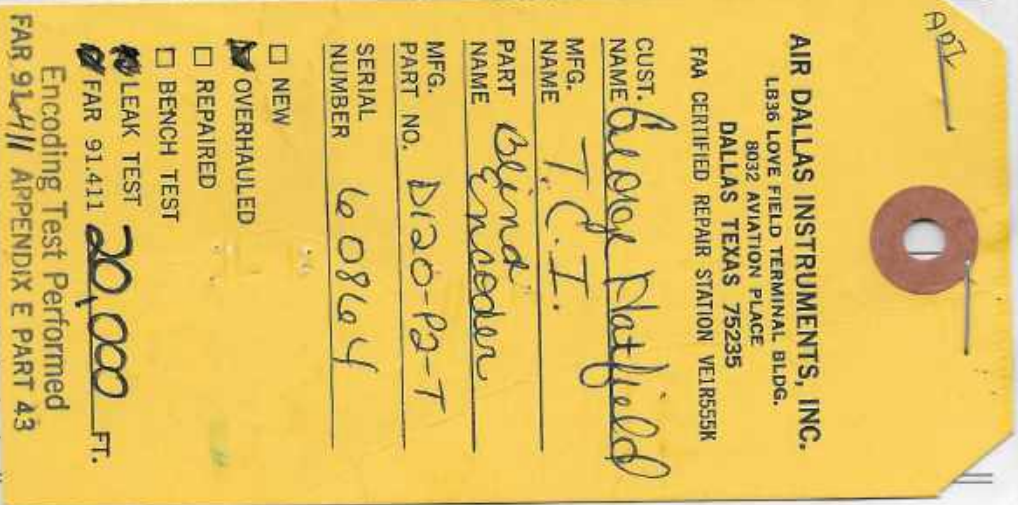 ADI
AIR DALLAS INSTRUMENTS, INC.
LB36 LOVE FIELD TERMINAL BLDG.
8032 AVIATION PLACE
DALLAS TEXAS 75235
FAA CERTIFIED REPAIR STATION VE1R555K
CUST. NAME George Hatfield
MFG. NAME T.C.I.
PART NAME Blind Encoder
MFG. PART NO. D120-P2-T
SERIAL NUMBER 60864
NEW
OVERHAULED
REPAIRED
BENCH TEST
LEAK TEST
FAR 91.411 20,000 FT.
Encoding Test Performed
FAR 91.411 APPENDIX E PART 43